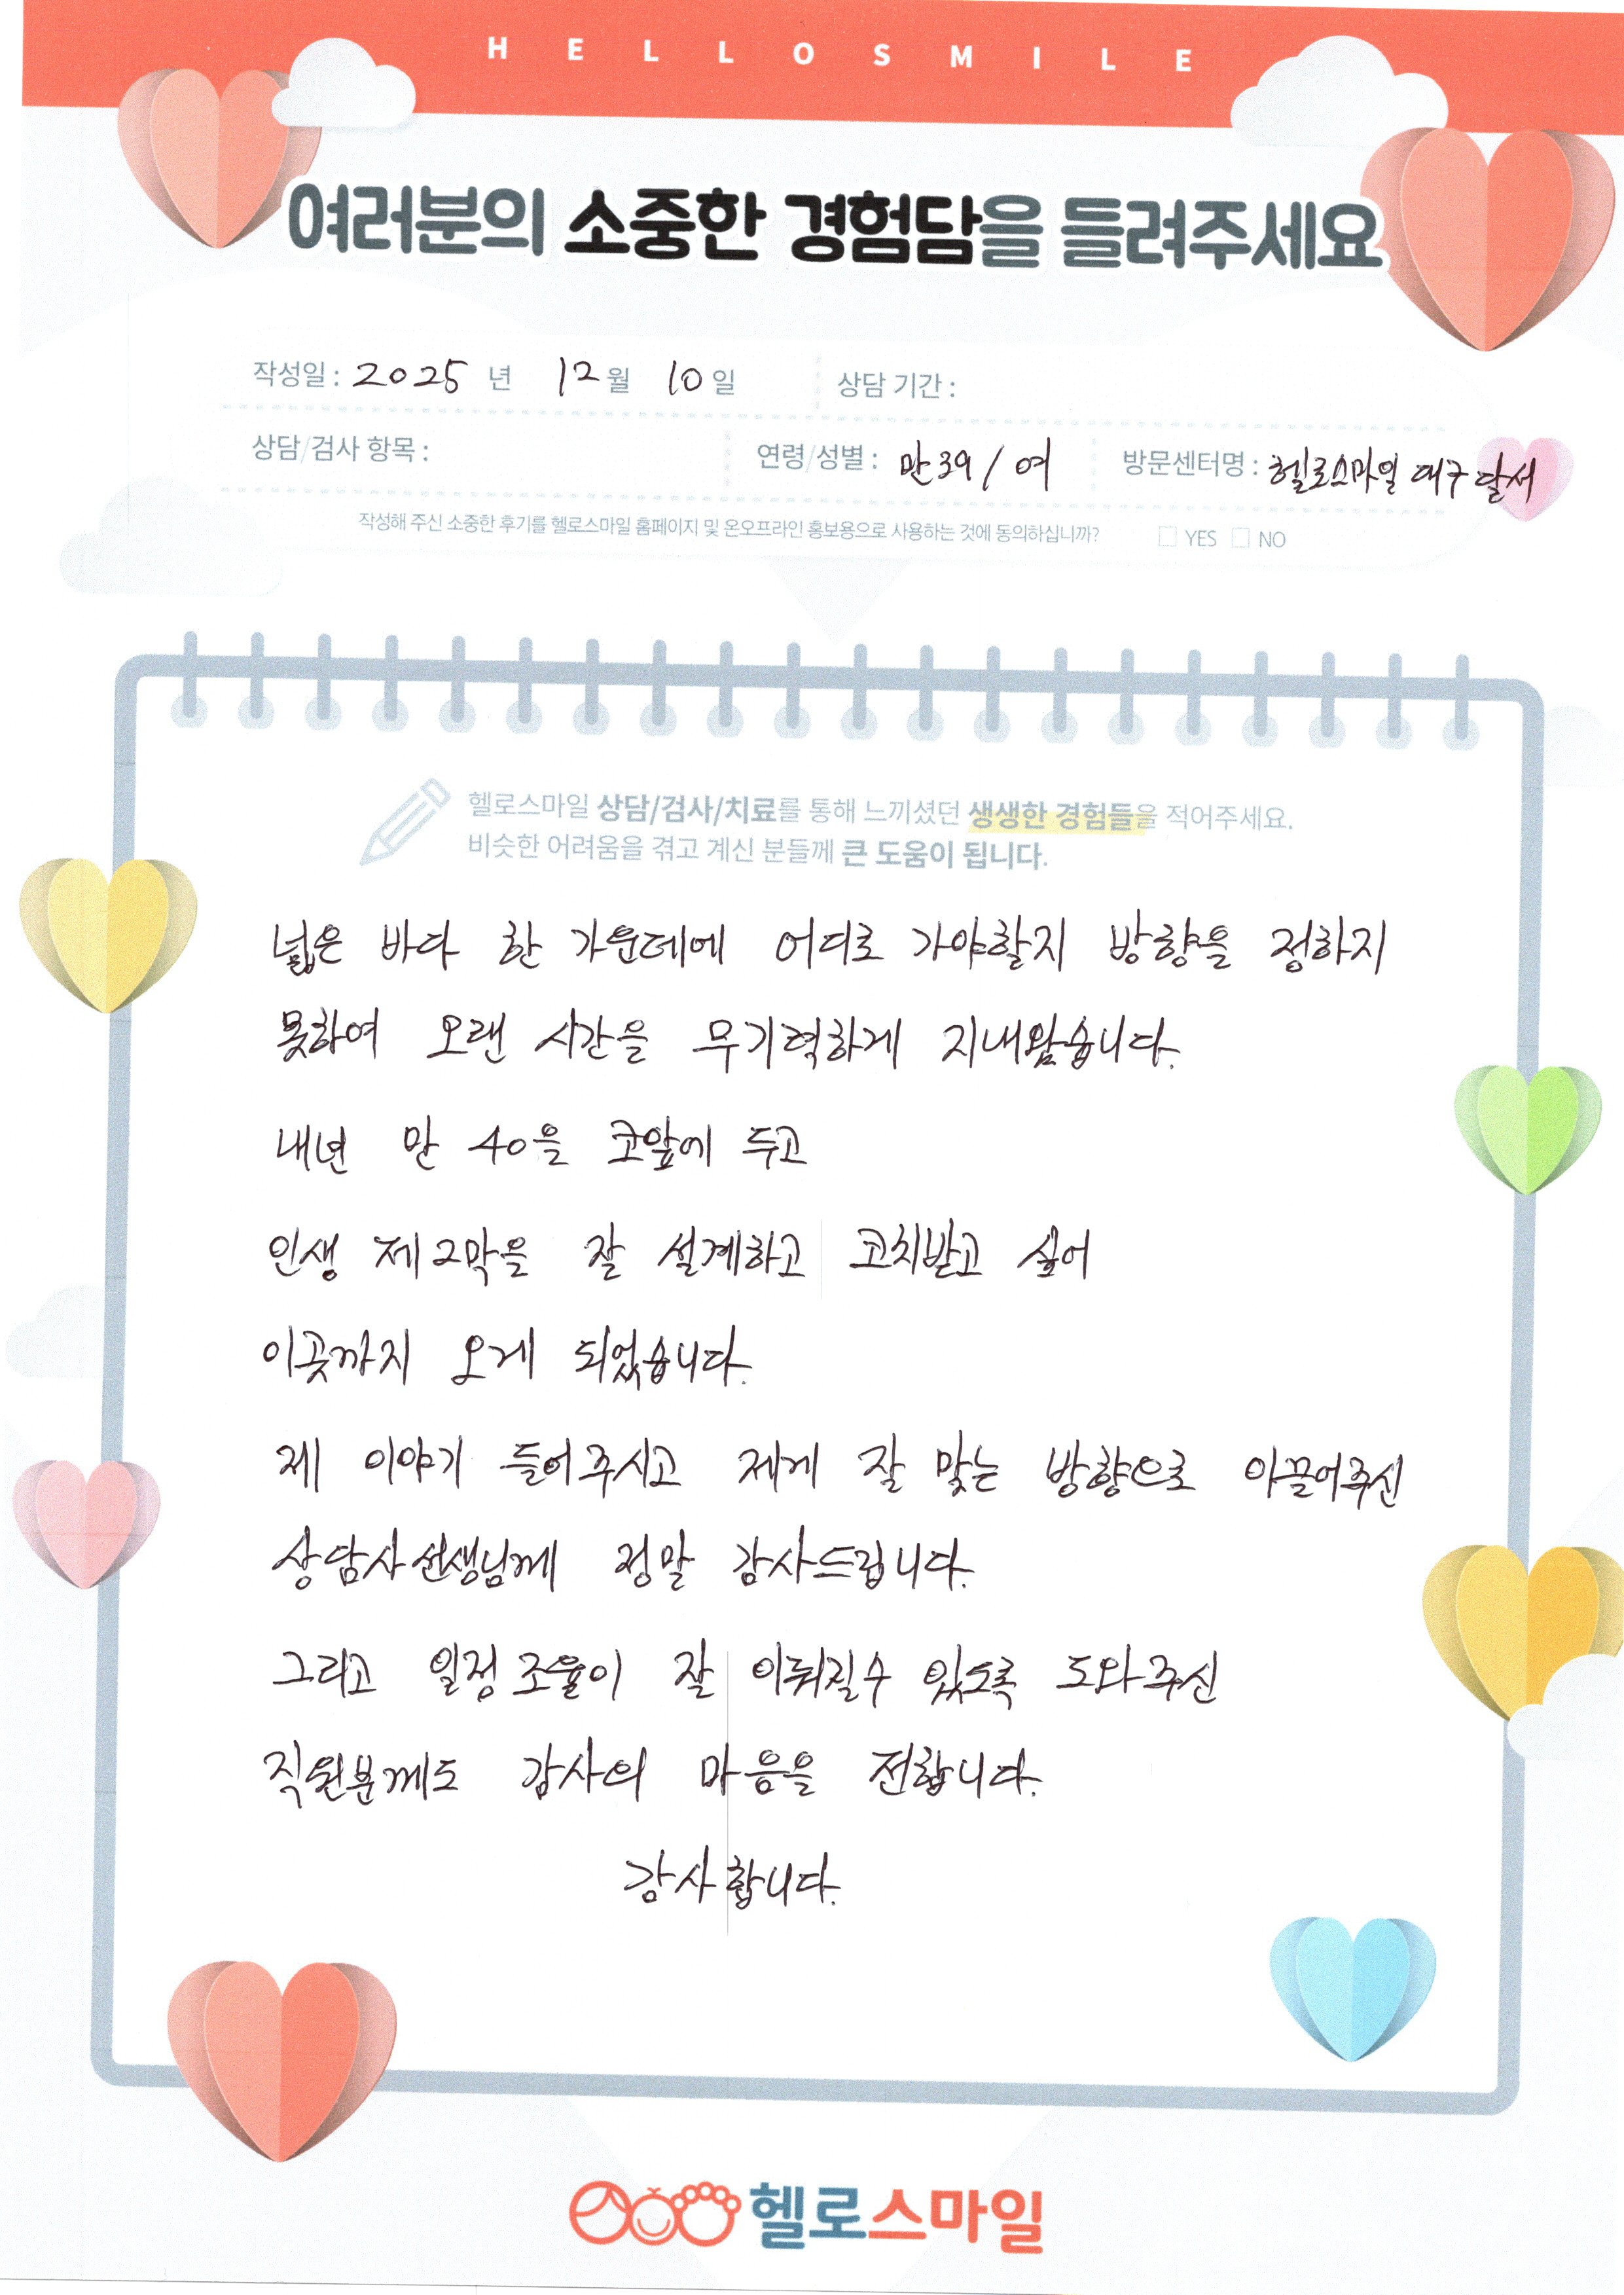 HELLOSMILE
여러분의 소중한 경험담을 들려주세요
작성일 : 2025 년 12월 10일 상담 기간 :
상담/검사 항목 : 연령/성별 : 만39 / 여 방문센터명 : 헬로스마일 대구달서
작성해 주신 소중한 후기를 헬로스마일 홈페이지 및 온오프라인 홍보용으로 사용하는 것에 동의하십니까? YES NO
헬로스마일 상담/검사/치료를 통해 느끼셨던 생생한 경험들을 적어주세요.
비슷한 어려움을 겪고 계신 분들께 큰 도움이 됩니다.
넓은 바다 한 가운데에 어디로 가야할지 방향을 정하지
못하여 오랜 시간을 무기력하게 지내왔습니다.
내년 만 40을 코앞에 두고
인생 제2막을 잘 설계하고 코치받고 싶어
이곳까지 오게 되었습니다.
제 이야기 들어주시고 제게 잘 맞는 방향으로 이끌어주신
상담사선생님께 정말 감사드립니다.
그리고 일정조율이 잘 이뤄질수 있도록 도와주신
직원분께도 감사의 마음을 전합니다.
감사합니다.
헬로스마일